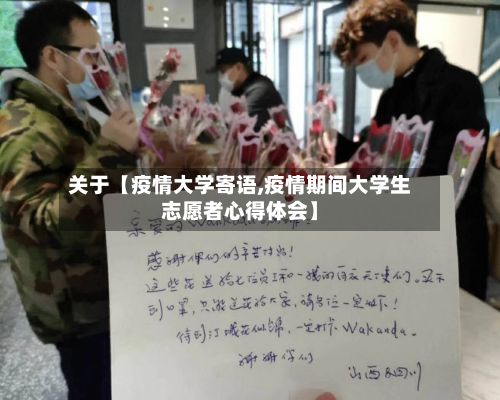 关于【疫情大学寄语,疫情期间大学生
志愿者心得体会】
亲爱的
感谢你们的辛苦付出!
这些花送给七位员工和一线的白衣天使们。又不
到口罩,只能送花给大家,请
待到江城花似锦,一定打卡Wakanda。
谢谢你们
山西&四川